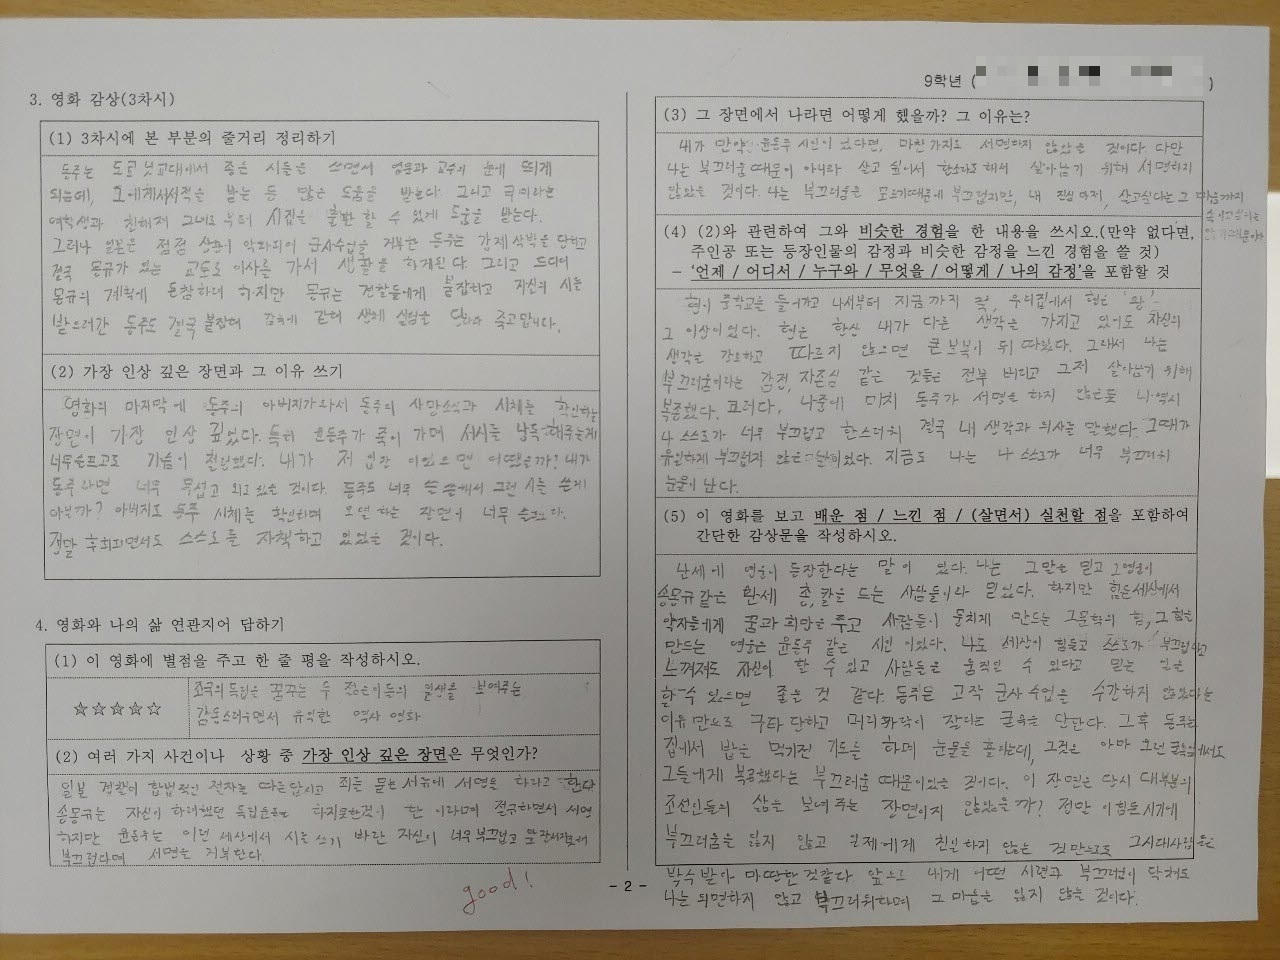 9학년 (
)
3. 영화 감상(3차시)
(1) 3차시에 본 부분의 줄거리 정리하기
동주는 도쿄 릿교대에서 좋은 시들을 쓰면서 영문과 교수의 눈에 띄게
되는데, 그에게서 서적을 받는 등 많은 도움을 받는다. 그리고 쿠미라는
여학생과 친해져 그녀로부터 시집을 출판 할 수 있게 도움을 받는다.
그러나 일본은 점점 상황이 악화되어 군사수업을 거부한 동주는 강제 삭발을 당하고
결국 몽규가 있는 교토로 이사를 가서 생활을 하게된다. 그리고 드디어
몽규의 계획에 동참하며 하지만 몽규는 경찰들에게 붙잡히고 자신의 시를
받으러간 동주도 결국 붙잡혀 감옥에 갇혀 생체 실험을 당하다 죽고만다.
(2) 가장 인상 깊은 장면과 그 이유 쓰기
영화의 마지막에 동주의 아버지가 와서 동주의 사망소식과 시체를 확인하는
장면이 가장 인상 깊었다. 특히 윤동주가 죽어 가며 서시를 낭독해주는게
너무 슬프고도 가슴이 절렸했다. 내가 저 입장 이었으면 어땠을까? 내가
동주라면 너무 무섭고 외로웠을 것이다. 동주도 너무 쓸쓸해서 그런 시를 쓴게
아닐까? 아버지도 동주 시체를 확인하며 오열 하는 장면이 너무 슬펐다.
정말 후회되면서도 스스로를 자책하고 있었을 것이다.
4. 영화와 나의 삶 연관지어 답하기
(1) 이 영화에 별점을 주고 한 줄 평을 작성하시오.
☆☆☆☆☆
조국의 독립을 꿈꾸는 두 젊은이들의 일생을 보여주는
감동스러우면서 유익한 역사 영화
(2) 여러 가지 사건이나 상황 중 가장 인상 깊은 장면은 무엇인가?
일본 경찰이 합법적인 절차를 따른답시고 죄를 묻는 서류에 서명을 하라고 한다
송몽규는 자신이 하려했던 독립운동을 하지못한것이 한 이라며 절규하면서 서명
하지만 윤동주는 이런 세상에서 시를 쓰기 바란 자신이 너무 부끄럽고 앞장서지못해
부끄럽다며 서명을 거부한다.
good!
- 2 -
(3) 그 장면에서 나라면 어떻게 했을까? 그 이유는?
내가 만약 윤동주 시인이었다면, 마찬가지로 서명하지 않았을 것이다. 다만
나는 부끄러움 때문이 아니라 살고 싶어서 한순간도 해서 살아남기 위해 서명하지
않았을 것이다. 나는 부끄러움은 모르기때문에 부끄럽지만, 내 진심 마저, 살고싶다는 그 마음까지
속이고싶지는
않기 때문이다
(4) (2)와 관련하여 그와 비슷한 경험을 한 내용을 쓰시오.(만약 없다면,
주인공 또는 등장인물의 감정과 비슷한 감정을 느낀 경험을 쓸 것)
- '언제 / 어디서 / 누구와 / 무엇을 / 어떻게 / 나의 감정'을 포함할 것
형이 중학교를 들어가고 나서부터 지금까지 쭉, 우리집에서 형은 '왕'
그 이상이었다. 형은 항상 내가 다른 생각을 가지고 있어도 자신의
생각을 강요하고 따르지 않으면 큰 보복이 뒤 따랐다. 그래서 나는
부끄러움이라는 감정, 자존심 같은 것들은 전부 버리고 그저 살아남기 위해
복종했다. 그러다, 나중에 마치 동주가 서명을 하지 않은듯 나 역시
나 스스로가 너무 부끄럽고 한스러워 결국 내 생각과 의사를 말했다. 그때가
유일하게 부끄럽지 않은 날이었다. 지금도 나는 나 스스로가 너무 부끄러워
눈물이 난다.
(5) 이 영화를 보고 배운 점 / 느낀 점 / (살면서) 실천할 점을 포함하여
간단한 감상문을 작성하시오.
난세에 영웅이 등장한다는 말이 있다. 나는 그 말을 믿고 그 영웅이
송몽규같은 환세 총,칼을 드는 사람들이라 믿었다. 하지만 힘든세상에서
약자들에게 꿈과 희망을 주고 사람들이 뭉치게 만드는 그 문학의 힘, 그 힘을
만드는 영웅은 윤동주 같은 시인 이었다. 나도 세상이 힘들고 스스로가 부끄럽다고
느껴져도 자신이 할 수 있고 사람들을 움직일 수 있다고 믿는 일을
할 수 있으면 좋을 것 같다. 동주는 고작 군사 수업을 수강하지 않았다는
이유 만으로 구타 당하고 머리카락이 잘리는 굴욕을 당한다. 그후 동주는
집에서 밥을 먹기전 기도를 하며 눈물을 흘리는데, 그것은 아마 그런 굴욕에서도
그들에게 복종했다는 부끄러움 때문이었을 것이다. 이 장면은 당시 대부분의
조선인들의 삶을 보여주는 장면이지 않았을까? 정말 이 힘든시기에
부끄러움을 잃지 않고 일제에게 친일하지 않는 것만으로도 그시대사람들은
박수 받아 마땅한 것같다. 앞으로 내게 어떤 시련과 부끄러움이 닥쳐도
나는 외면하지 않고 부끄러워하며 그 마음을 잃지 않을 것이다.